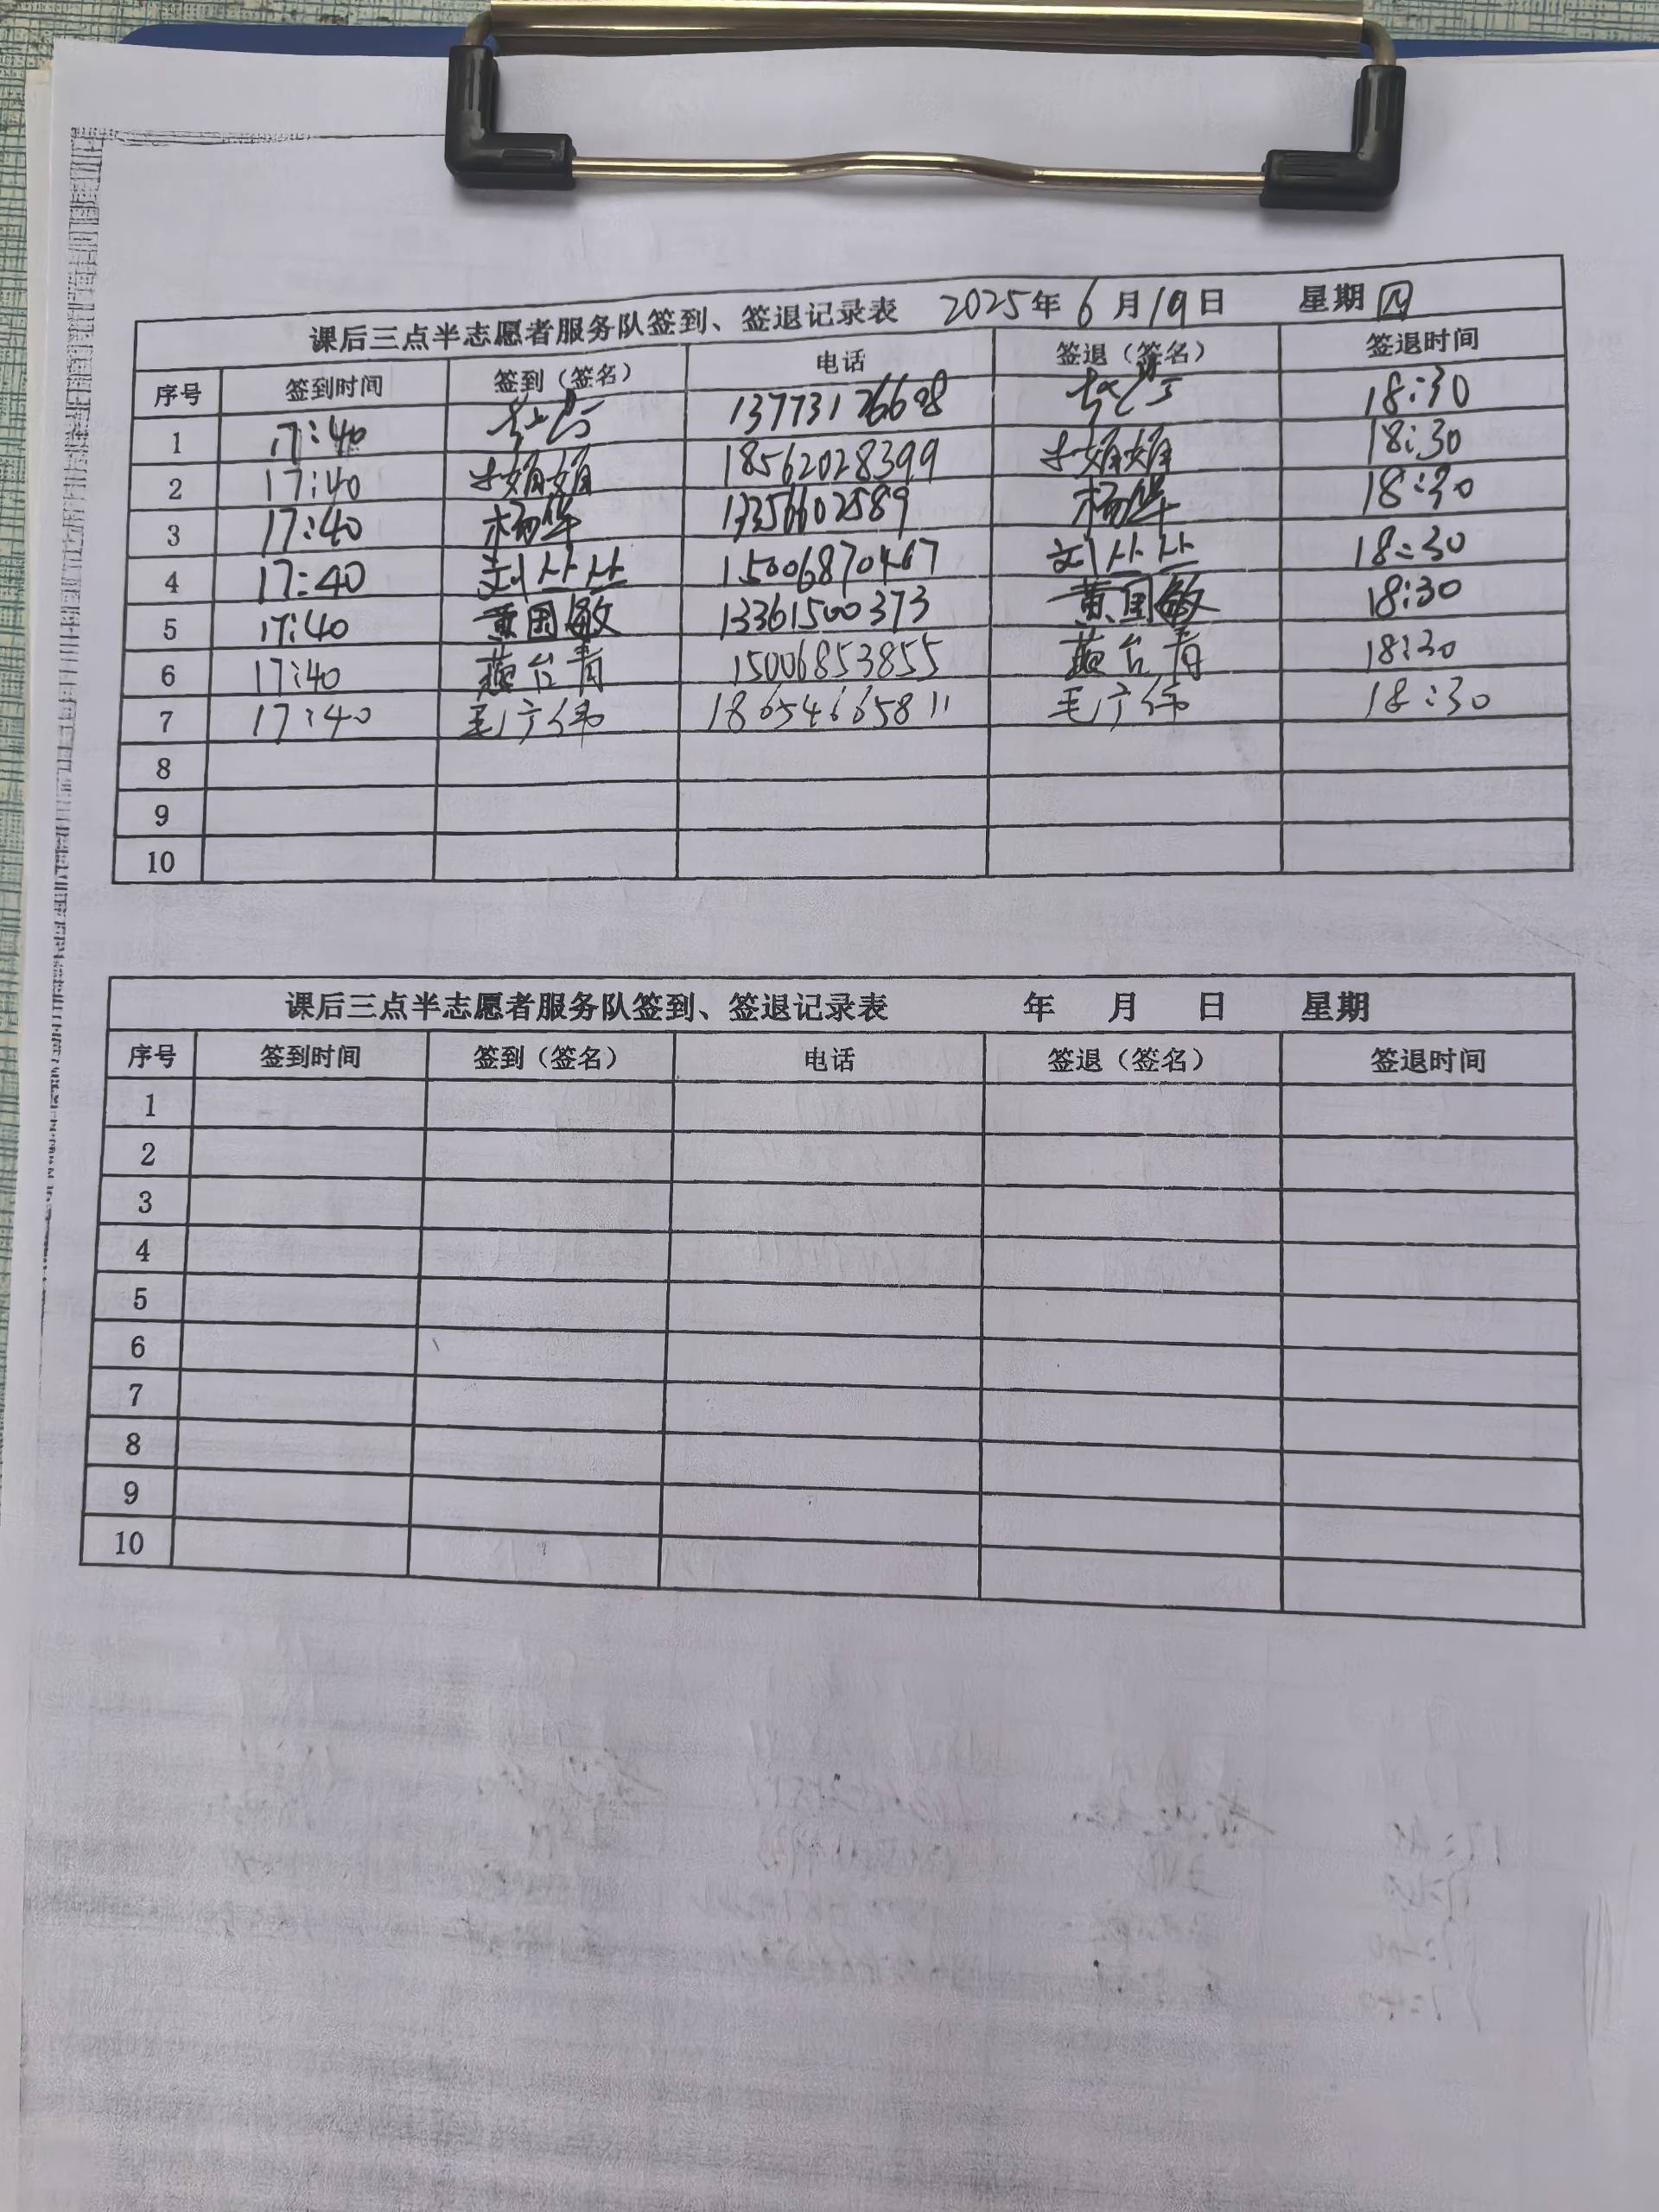 课后三点半志愿者服务队签到、签退记录表 2025年6月19日 星期四
序号 签到时间 签到（签名） 电话 签退（签名） 签退时间
1 17:40 18:30
2 17:40 18562028399 18:30
3 17:40 杨华 13356602589 杨华 18:30
4 17:40 刘丛丛 15006870467 刘丛丛 18:30
5 17:40 黄国敏 13361500373 黄国敏 18:30
6 17:40 燕台青 15006853855 燕台青 18:30
7 17:40 毛广伟 18654665811 毛广伟 18:30
8
9
10
课后三点半志愿者服务队签到、签退记录表 年 月 日 星期
序号 签到时间 签到（签名） 电话 签退（签名） 签退时间
1
2
3
4
5
6
7
8
9
10